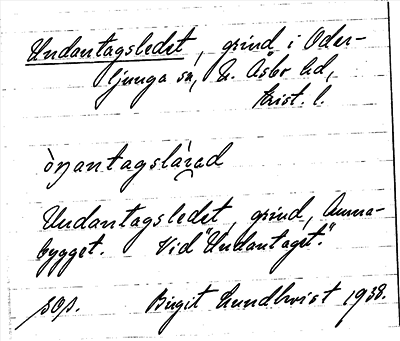 Undantagsledet, grind i Oder-
ljunga sn, N. Åsbo hd,
Krist. l.
òŋantagslä̀rad
Undantagsledet, grind, Anna-
bygget. Vid "Undantaget".
sop. Birgit Lundkvist 1938.